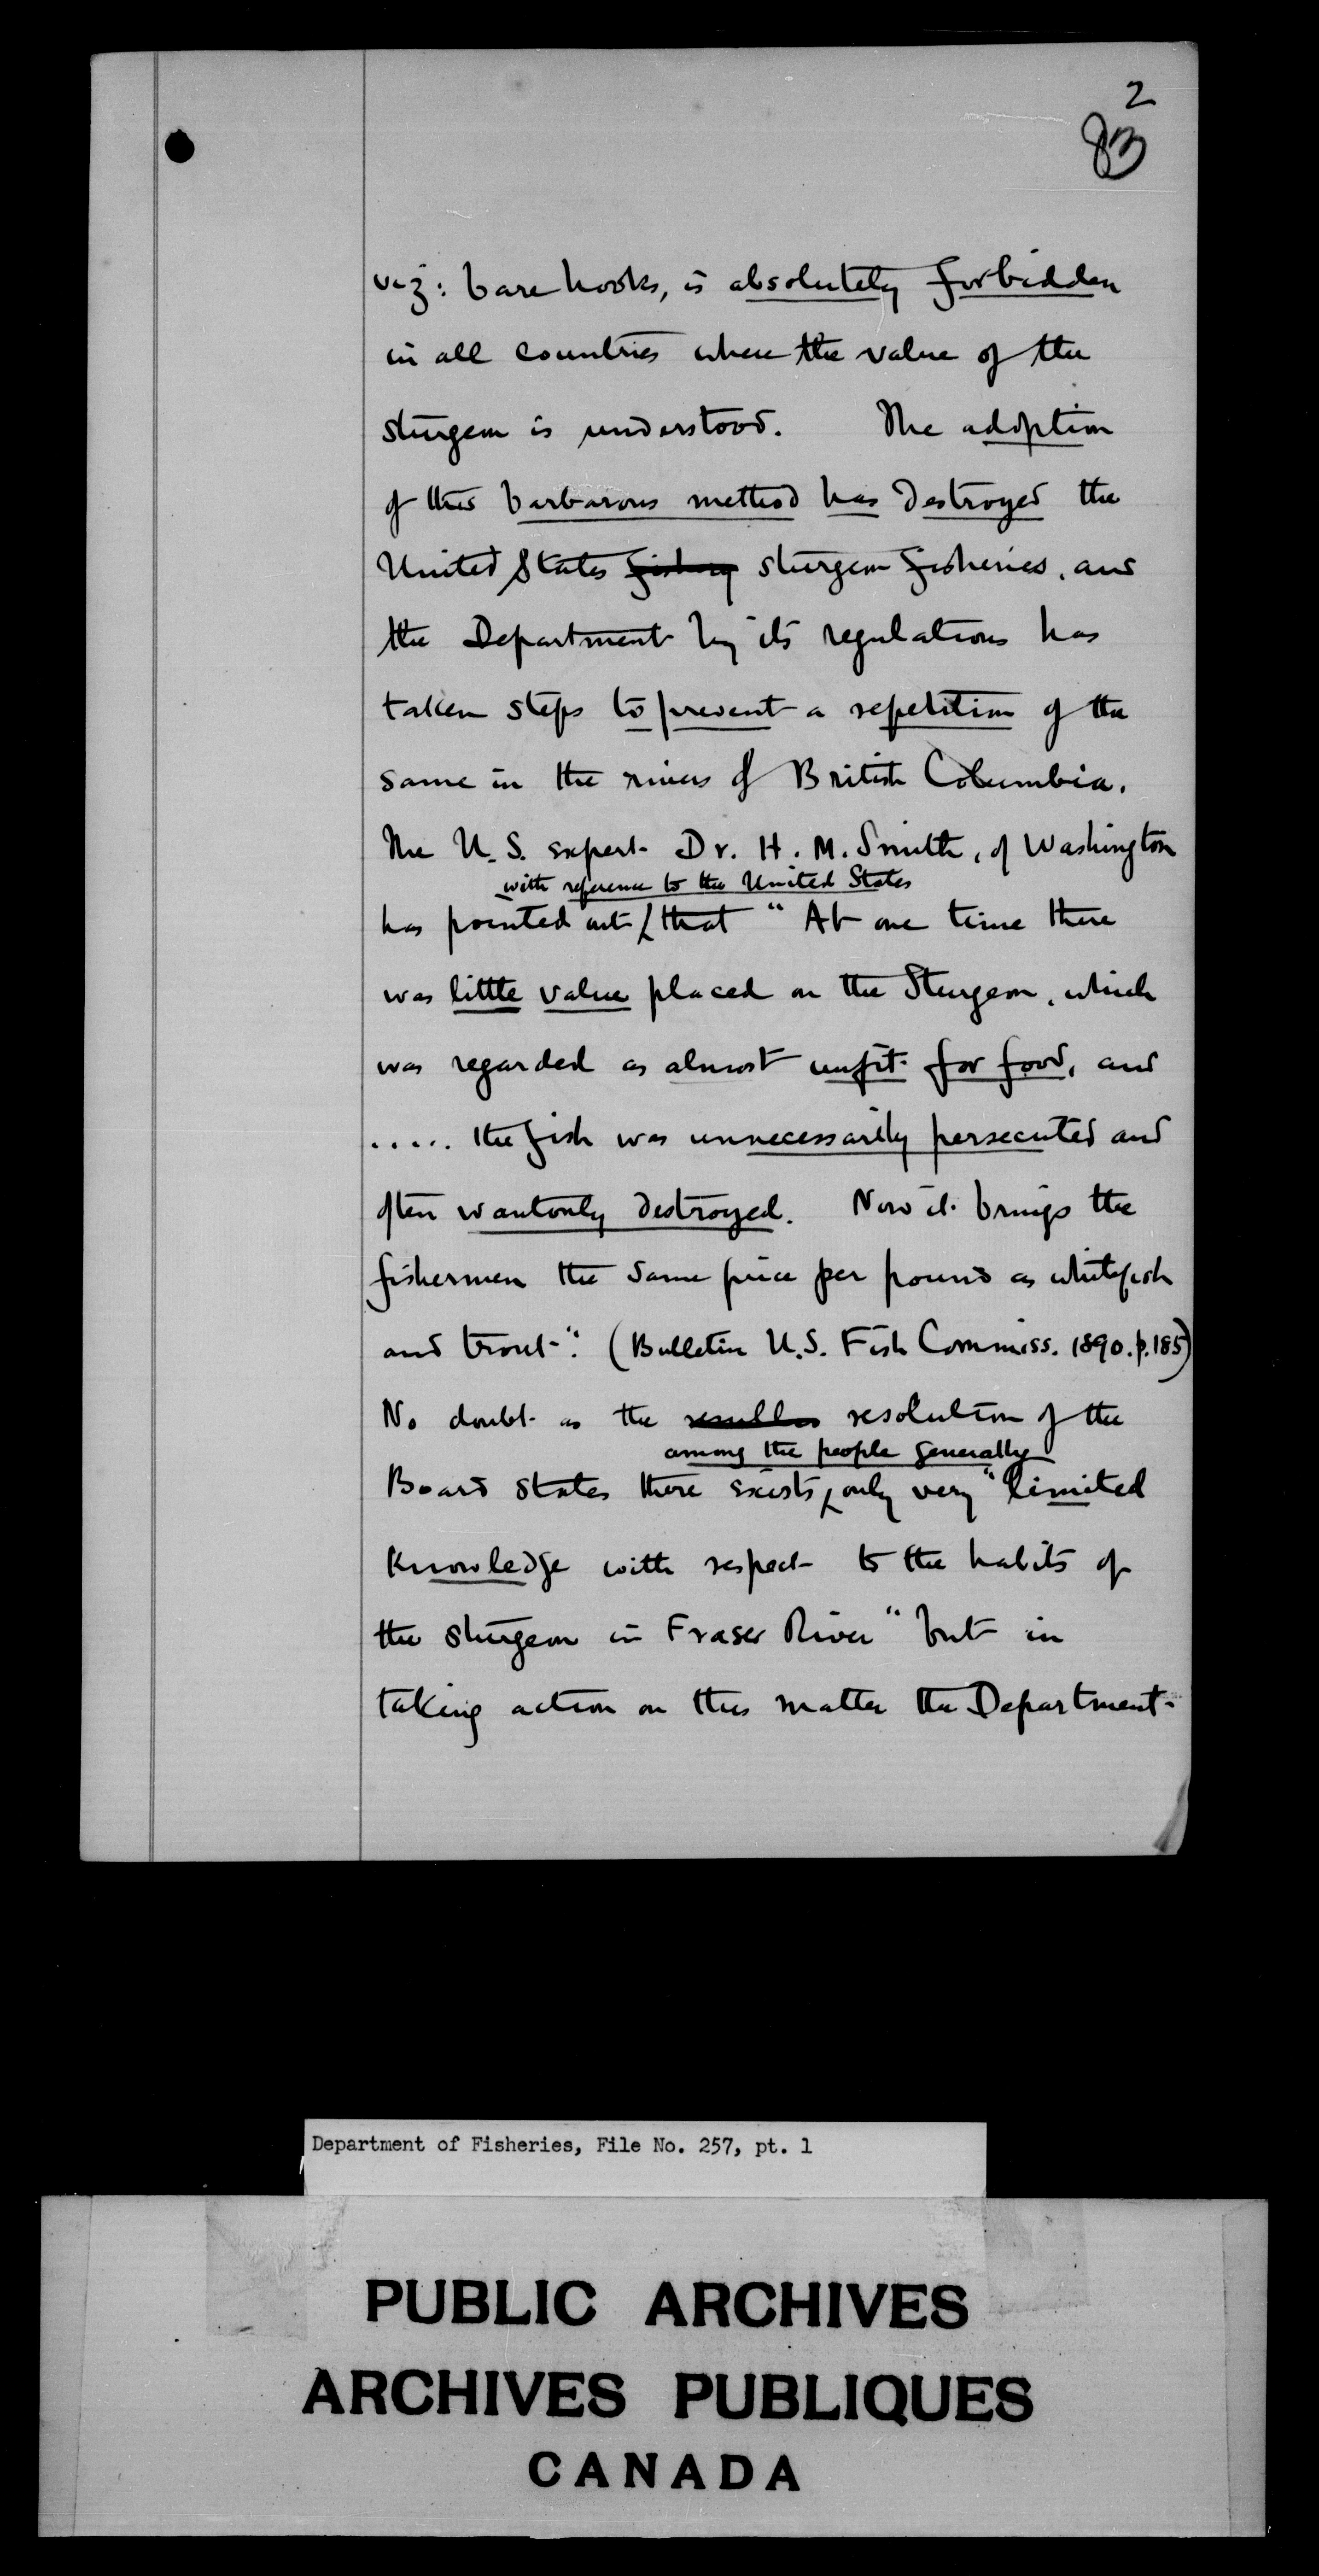 2
83
viz: bare hooks, is absolutely forbidden
in all countries where the value of the
sturgeon is understood. The adoption
of this barbarous method has destroyed the
United States fishery sturgeon fisheries, and
the Department by its regulations has
taken steps to prevent a repetition of the
same in the rivers of British Columbia.
The U.S. expert Dr. H. M. Smith, of Washington
with reference to the United States
has pointed out that "At one time there
was little value placed on the Sturgeon, which
was regarded as almost unfit for food, and
..... the fish was unnecessarily persecuted and
often wantonly destroyed. Now it brings the
fishermen the same price per pound as whitefish
and trout". (Bulletin U.S. Fish Commiss. 1890. p.185)
No doubt as the resolution of the
among the people generally
Board states there exists only very "limited
knowledge with respect to the habits of
the sturgeon in Fraser River" but in
taking action on this matter the Department
Department of Fisheries, File No. 257, pt. 1
PUBLIC ARCHIVES
ARCHIVES PUBLIQUES
CANADA